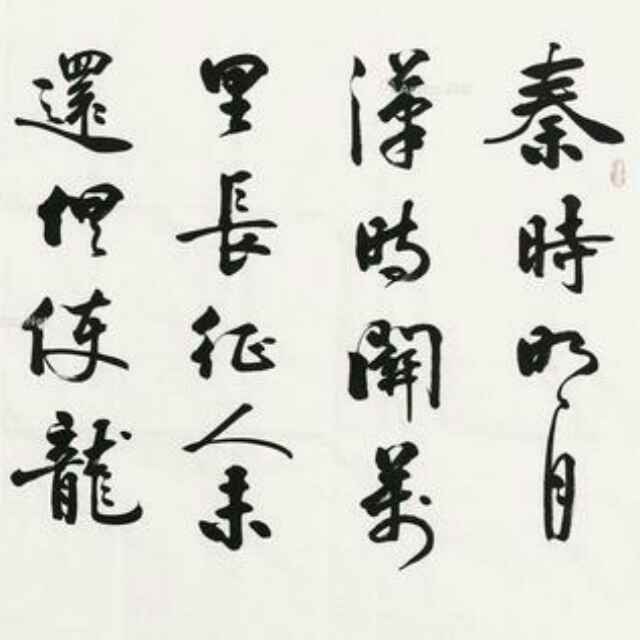 秦時明月
漢時關萬
里長征人未
還但使龍